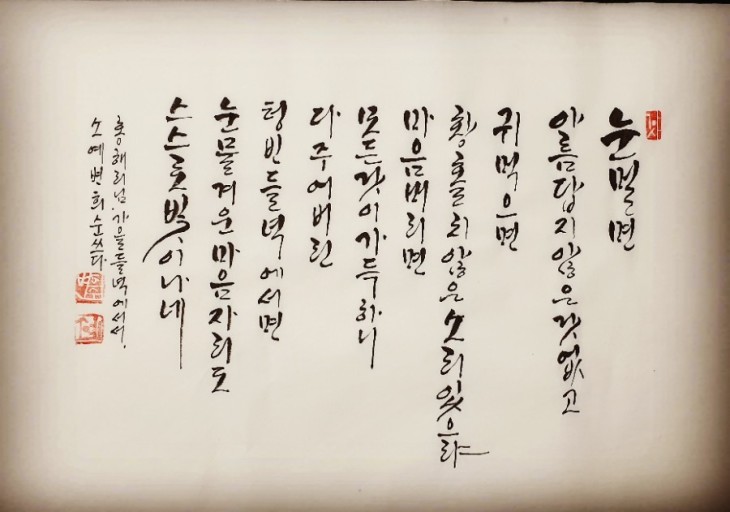 눈멀면
아름답지않은것없고
귀먹으면
황홀치않은소리있으랴
마음버리면
모든것이가득하니
다주어버린
텅빈들녘에서면
눈물겨운마음자리도
스스로빛이나네
홍해리님.가을들녘에서서.
소예변희순쓰다